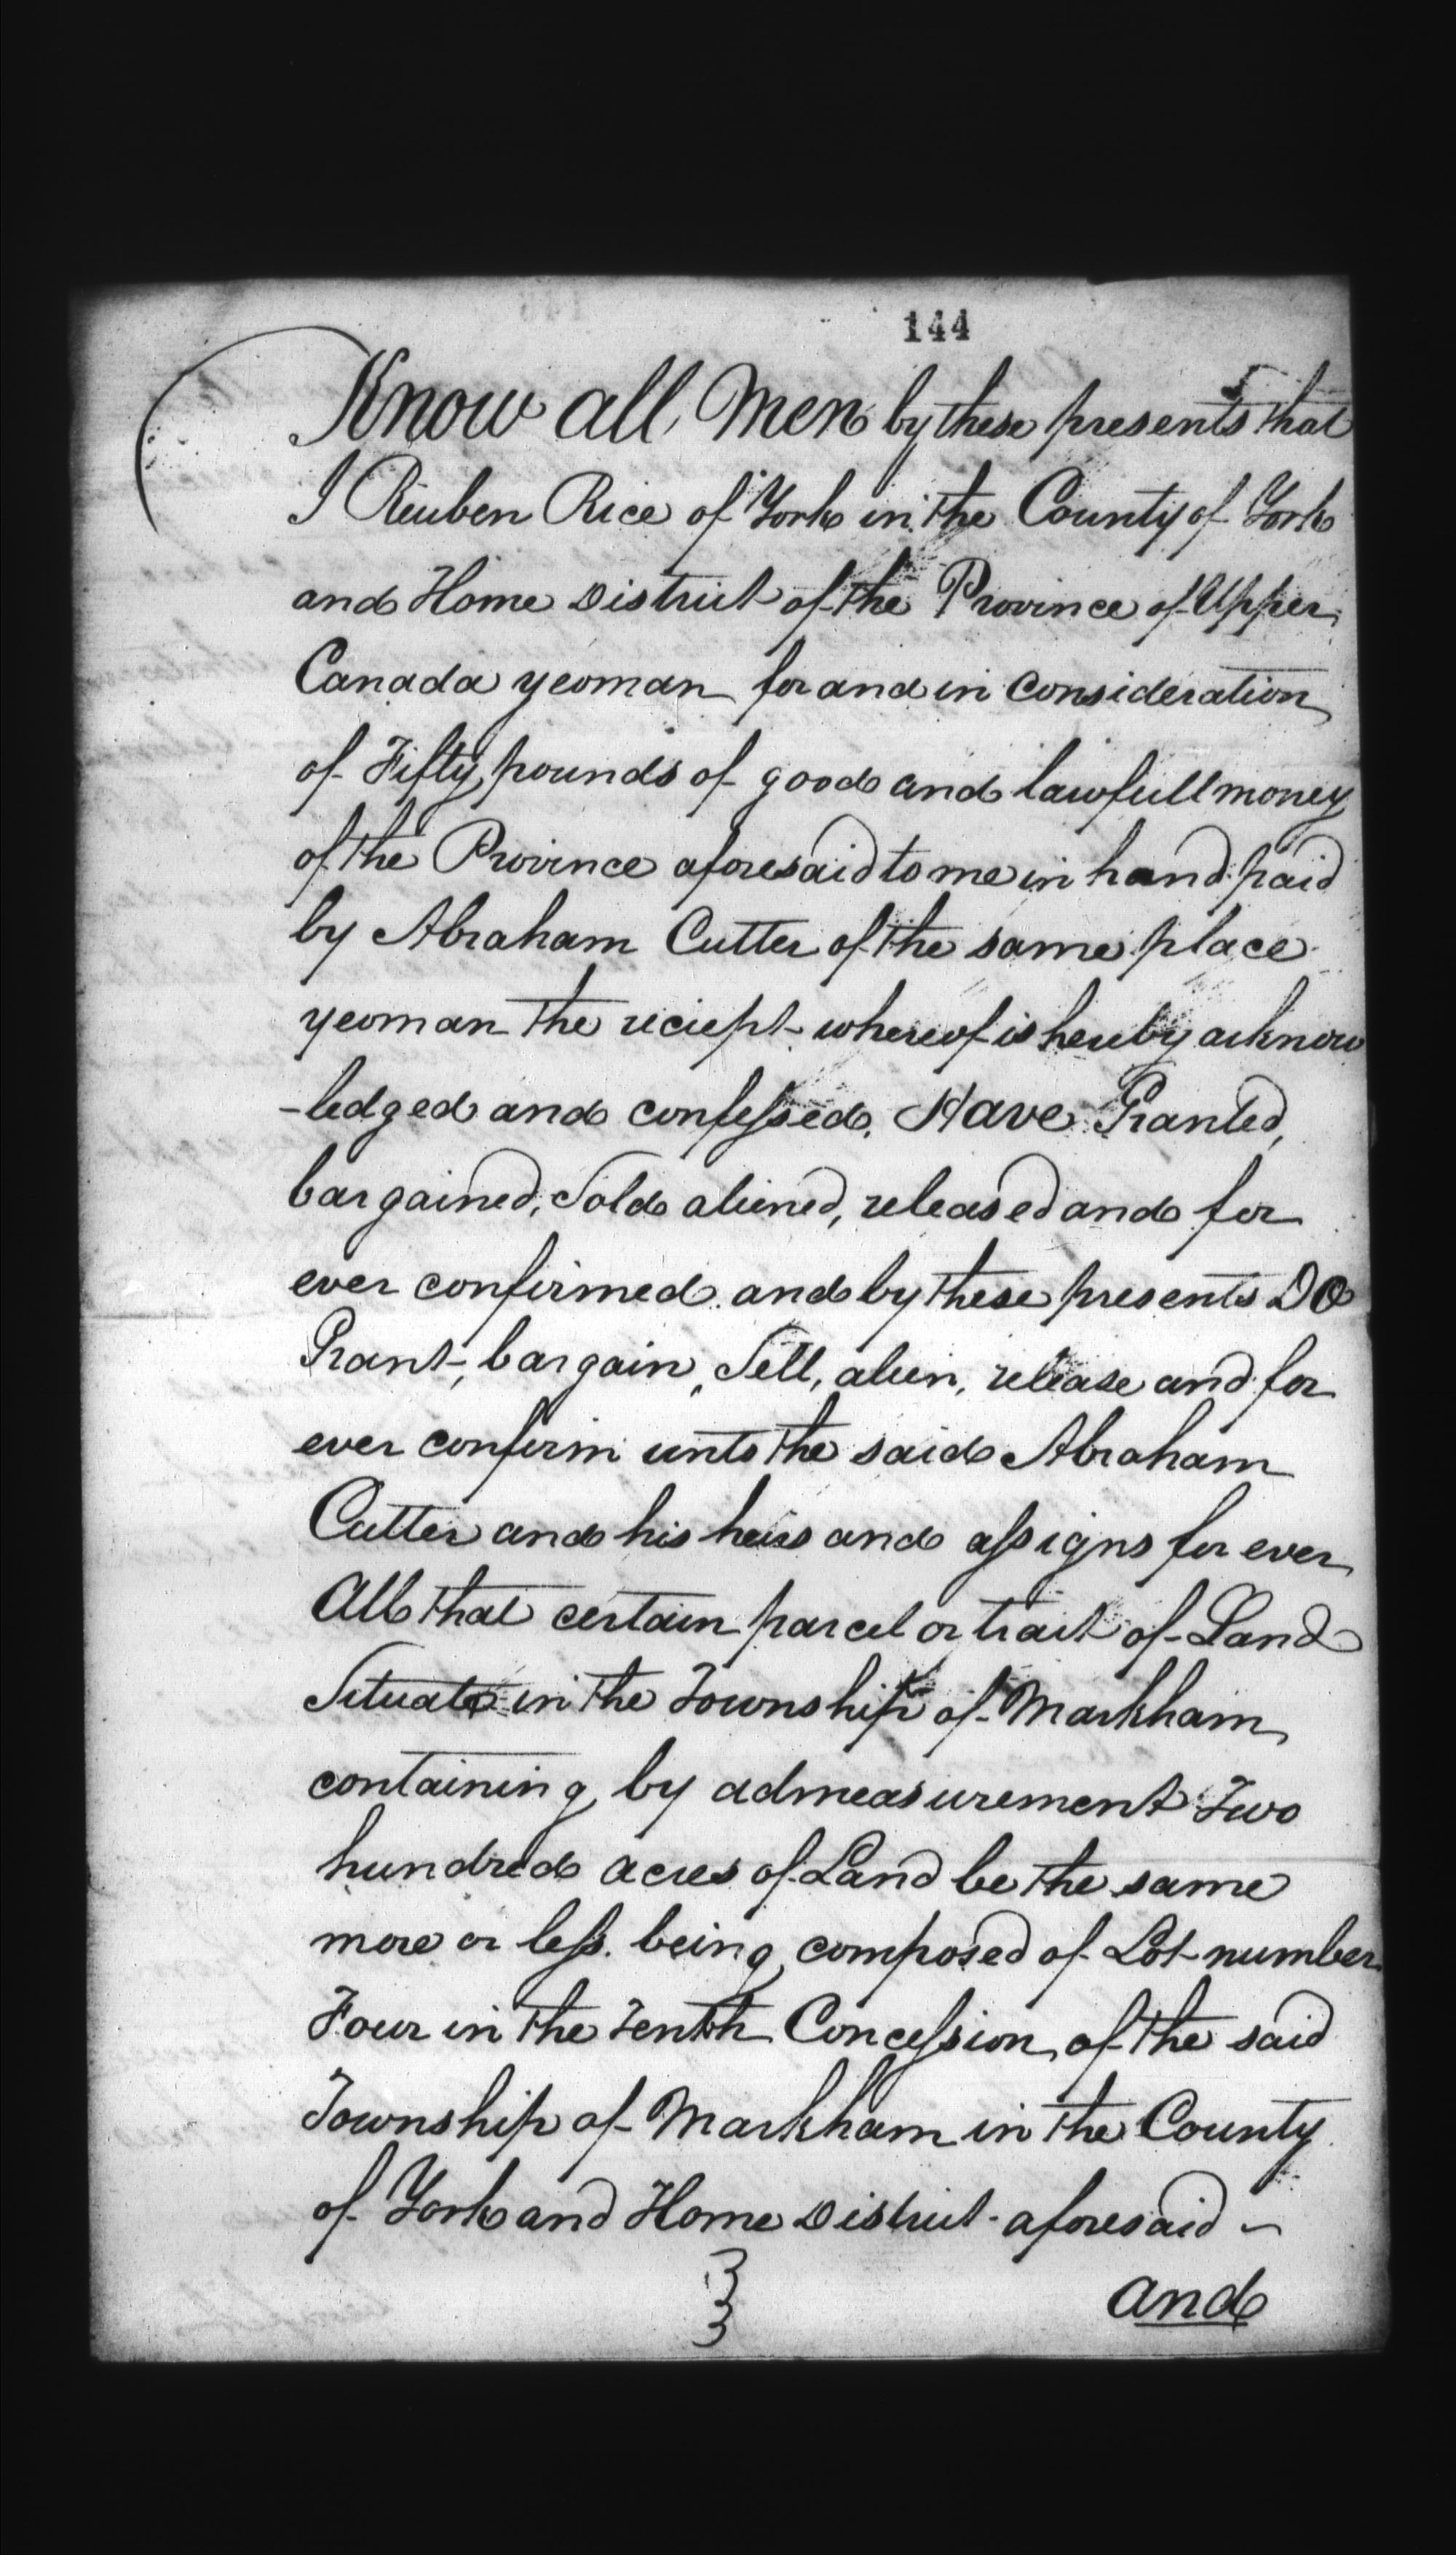 144
Know all Men by these presents that
I Reuben Rice of York in the County of York
and Home District of the Province of Upper
Canada yeoman for and in consideration
of Fifty pounds of good and lawfull money
of the Province aforesaid to me in hand paid
by Abraham Cutter of the same place
yeoman the reciept whereof is hereby acknow
-ledged and confessed. Have Granted,
bargained, Sold aliened, released and for
ever confirmed and by these presents DO
Grant, bargain, Sell, alien, release and for
ever confirm unto the said Abraham
Cutter and his heirs and assigns for ever
All that certain parcel or tract of Land
Situate in the Township of Markham
containing by admeasurement Two
hundred acres of Land be the same
more or less. being composed of Lot number
Four in the Tenth Concession of the said
Township of Markham in the County
of York and Home District aforesaid –
and